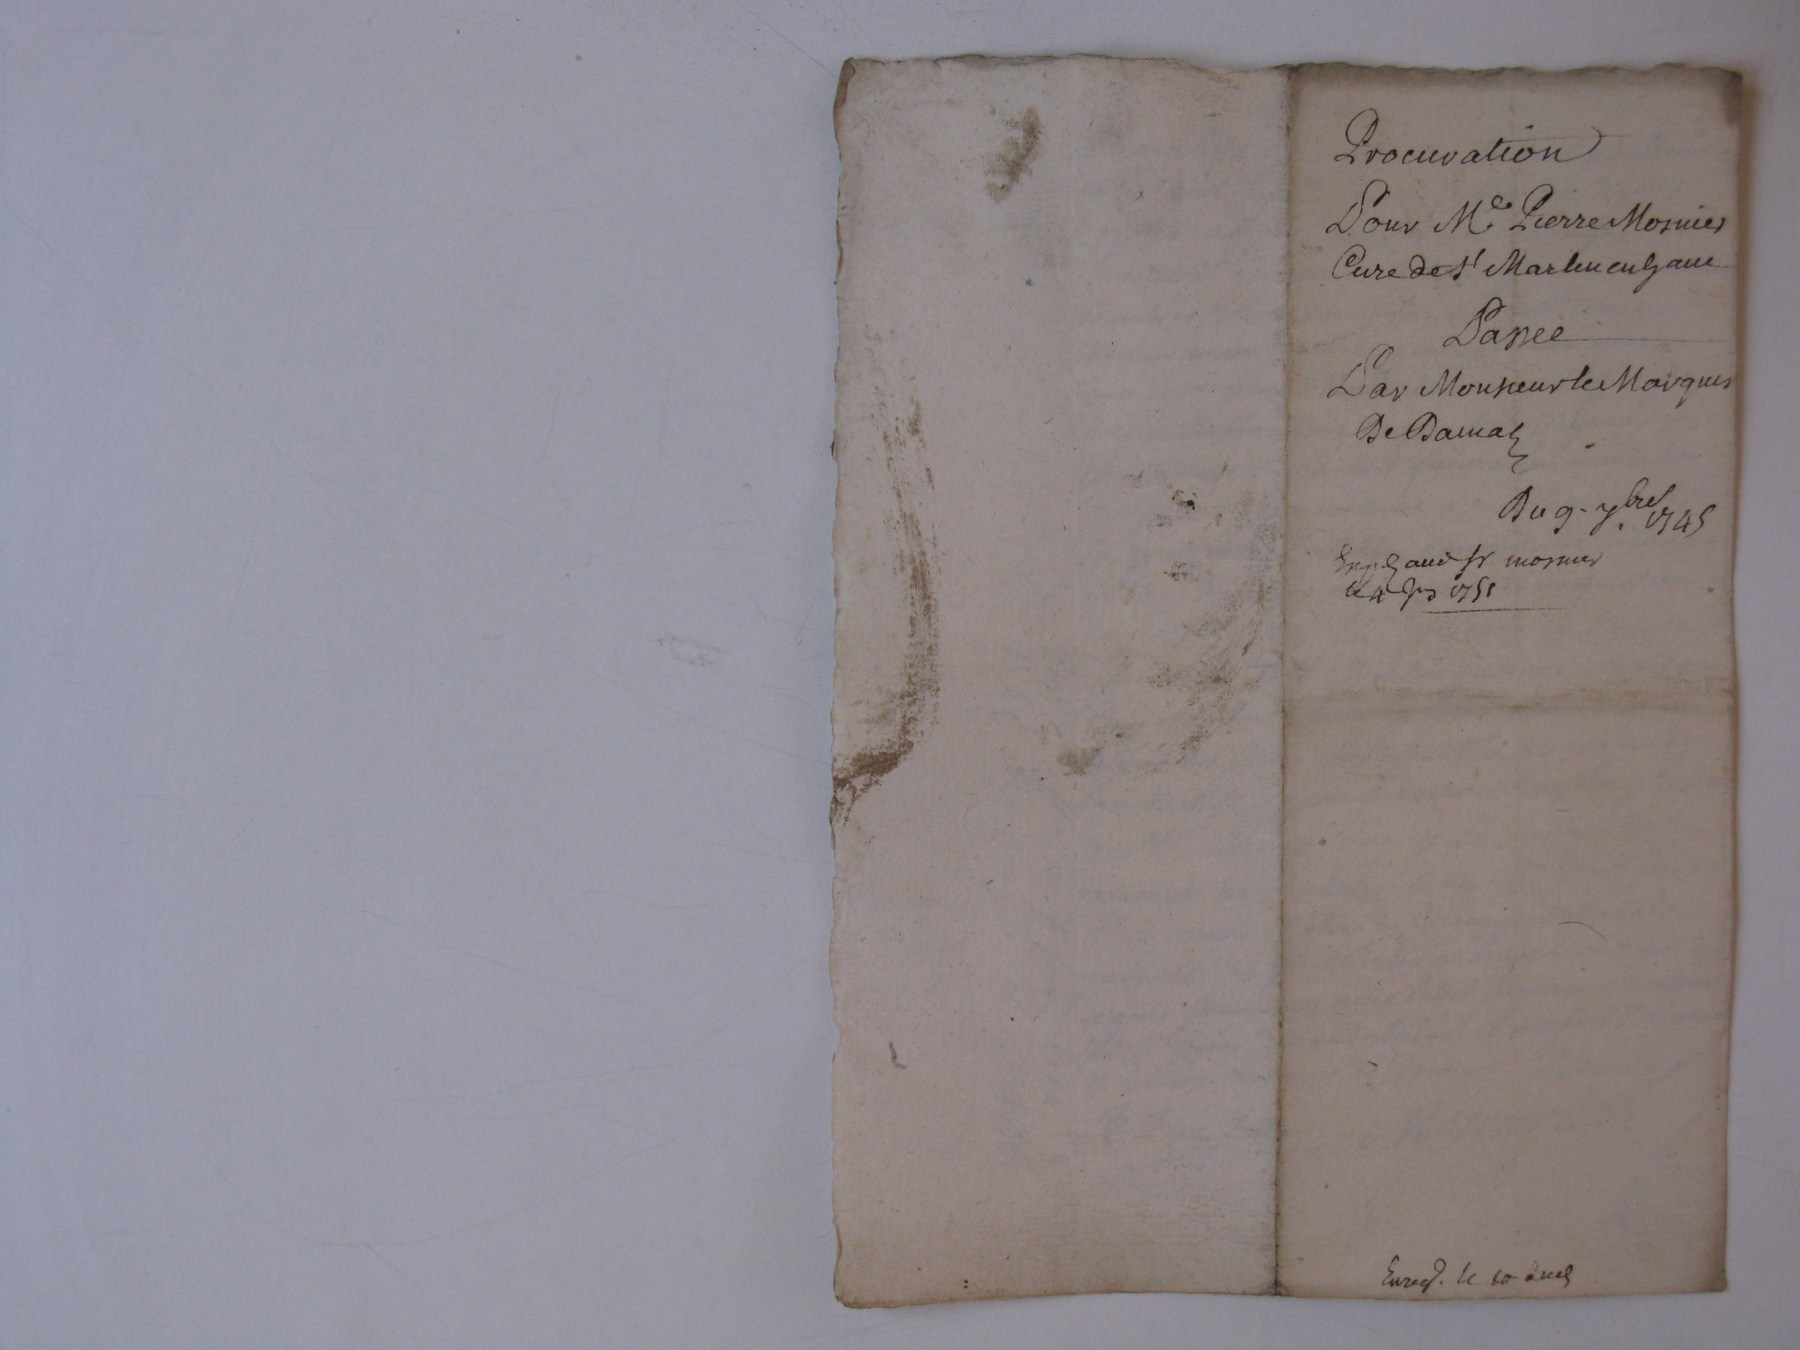 Procuration
Pour Me Pierre Mosnier
Cure de St Martin en haut
Passee
Par Monsieur le Marquis
De Bamaz
Du 9. 7bre 1745
mosnier
le 4 1751
Enreg. le 10 dud